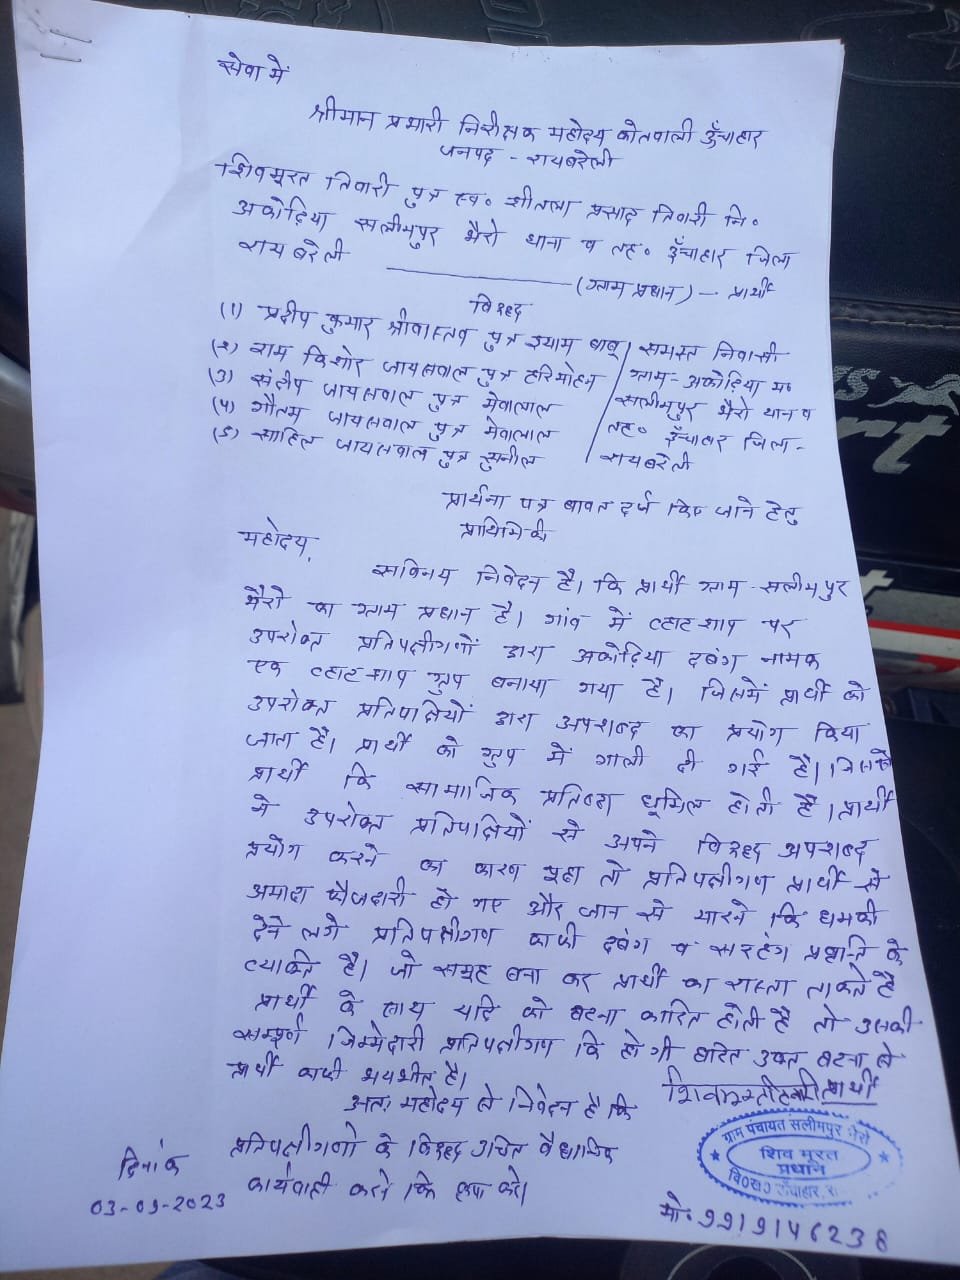 सेवा में
श्रीमान प्रभारी निरीक्षक महोदय कोतवाली ऊँचाहार
जनपद - रायबरेली
शिवमूरत तिवारी पुत्र स्व० शीतला प्रसाद तिवारी नि०
अकोढ़िया सलीमपुर भैरो थाना व तह० ऊँचाहार जिला
रायबरेली ——— (ग्राम प्रधान) — प्रार्थी
विरुद्द
(1) प्रदीप कुमार श्रीवास्तव पुत्र श्याम बाबू
(२) राम किशोर जायसवाल पुत्र हरिमोहन
(3) संदीप जायसवाल पुत्र मेवालाल
(4) गौतम जायसवाल पुत्र मेवालाल
(5) साहिल जायसवाल पुत्र सुनील
समस्त निवासी
ग्राम- अकोढ़िया म०
सलीमपुर भैरो थाना व
तह० ऊँचाहार जिला-
रायबरेली
प्रार्थना पत्र बावत दर्ज किए जाने हेतु
प्राथिमिकी
महोदय,
सविनय निवेदन है। कि प्रार्थी ग्राम-सलीमपुर
भैरो का ग्राम प्रधान है। गांव में व्हाट्शाप पर
उपरोक्त प्रतिपक्षीगणों द्वारा अकोढ़िया दबंग नामक
एक व्हाट्शाप ग्रुप बनाया गया है। जिसमें प्रार्थी को
उपरोक्त प्रतिपक्षियों द्वारा अपशब्द का प्रयोग किया
जाता है। प्रार्थी को ग्रुप में गाली दी गई है। जिससे
प्रार्थी कि सामाजिक प्रतिष्ठा धूमिल होती है। प्रार्थी
ने उपरोक्त प्रतिपक्षियों से अपने विरुद्द अपशब्द
प्रयोग करने का कारण पूछा तो प्रतिपक्षीगण प्रार्थी से
अमादा फौजदारी हो गए और जान से मारने कि धमकी
देने लगे प्रतिपक्षीगण काफी दबंग व सरहंग प्रव्रति के
व्यक्ति है। जो समूह बना कर प्रार्थी का रास्ता ताकते है
प्रार्थी के साथ यदि को घटना कारित होती है तो उसकी
सम्पूर्ण जिम्मेदारी प्रतिपक्षीगण कि होगी घटित उक्त घटना से
प्रार्थी काफी भयभीत है।
अतः महोदय से निवेदन है कि
प्रतिपक्षीगणो के विरुद्द उचित वैधानिक
कार्यवाही करने कि कृपा करे।
प्रार्थी
ग्राम पंचायत सलीमपुर भैरो
शिव मूरत
प्रधान
वि०ख० ऊँचाहार, रा
दिनांक
03-09-2023
मो० 9919146238